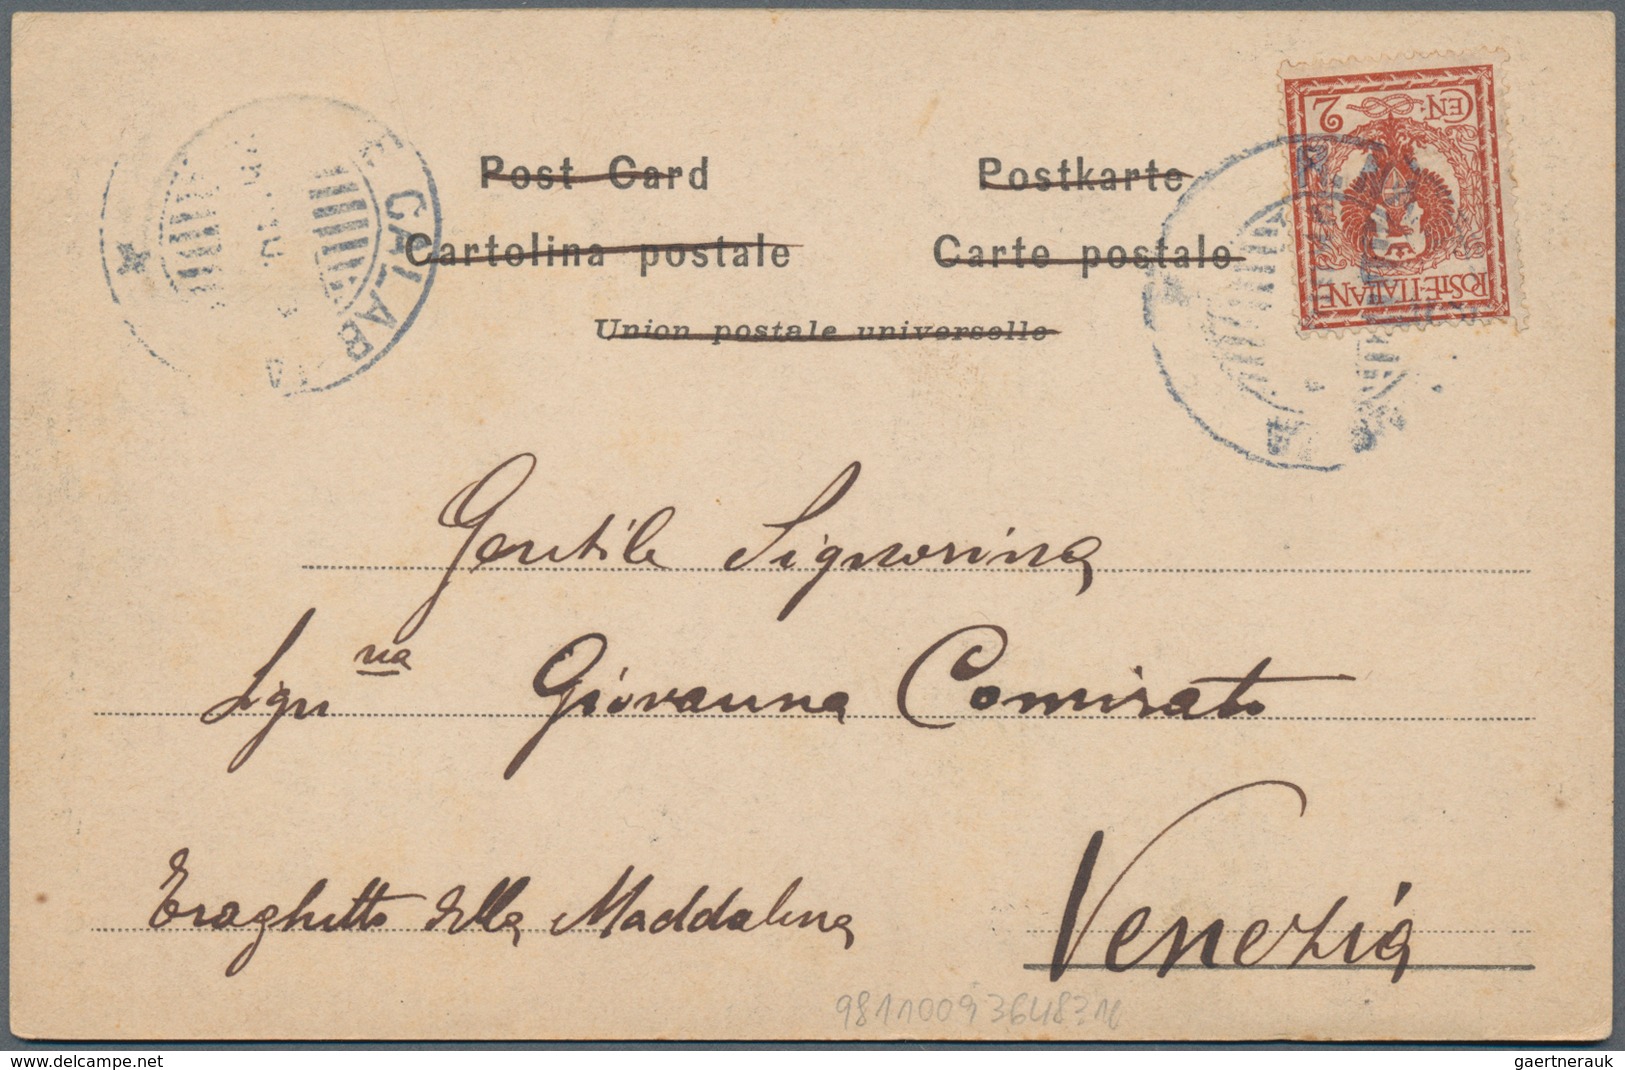 Post Card Postkarte
Cartolina postale Carte postale
Union postale universelle
CEN. 2
POSTE·ITALIANE
CALAB
Gentile Signorina
Sign na Giovanna Comirato
Traghetto della Maddalena Venezia
delcampe.net
gaertnerauk